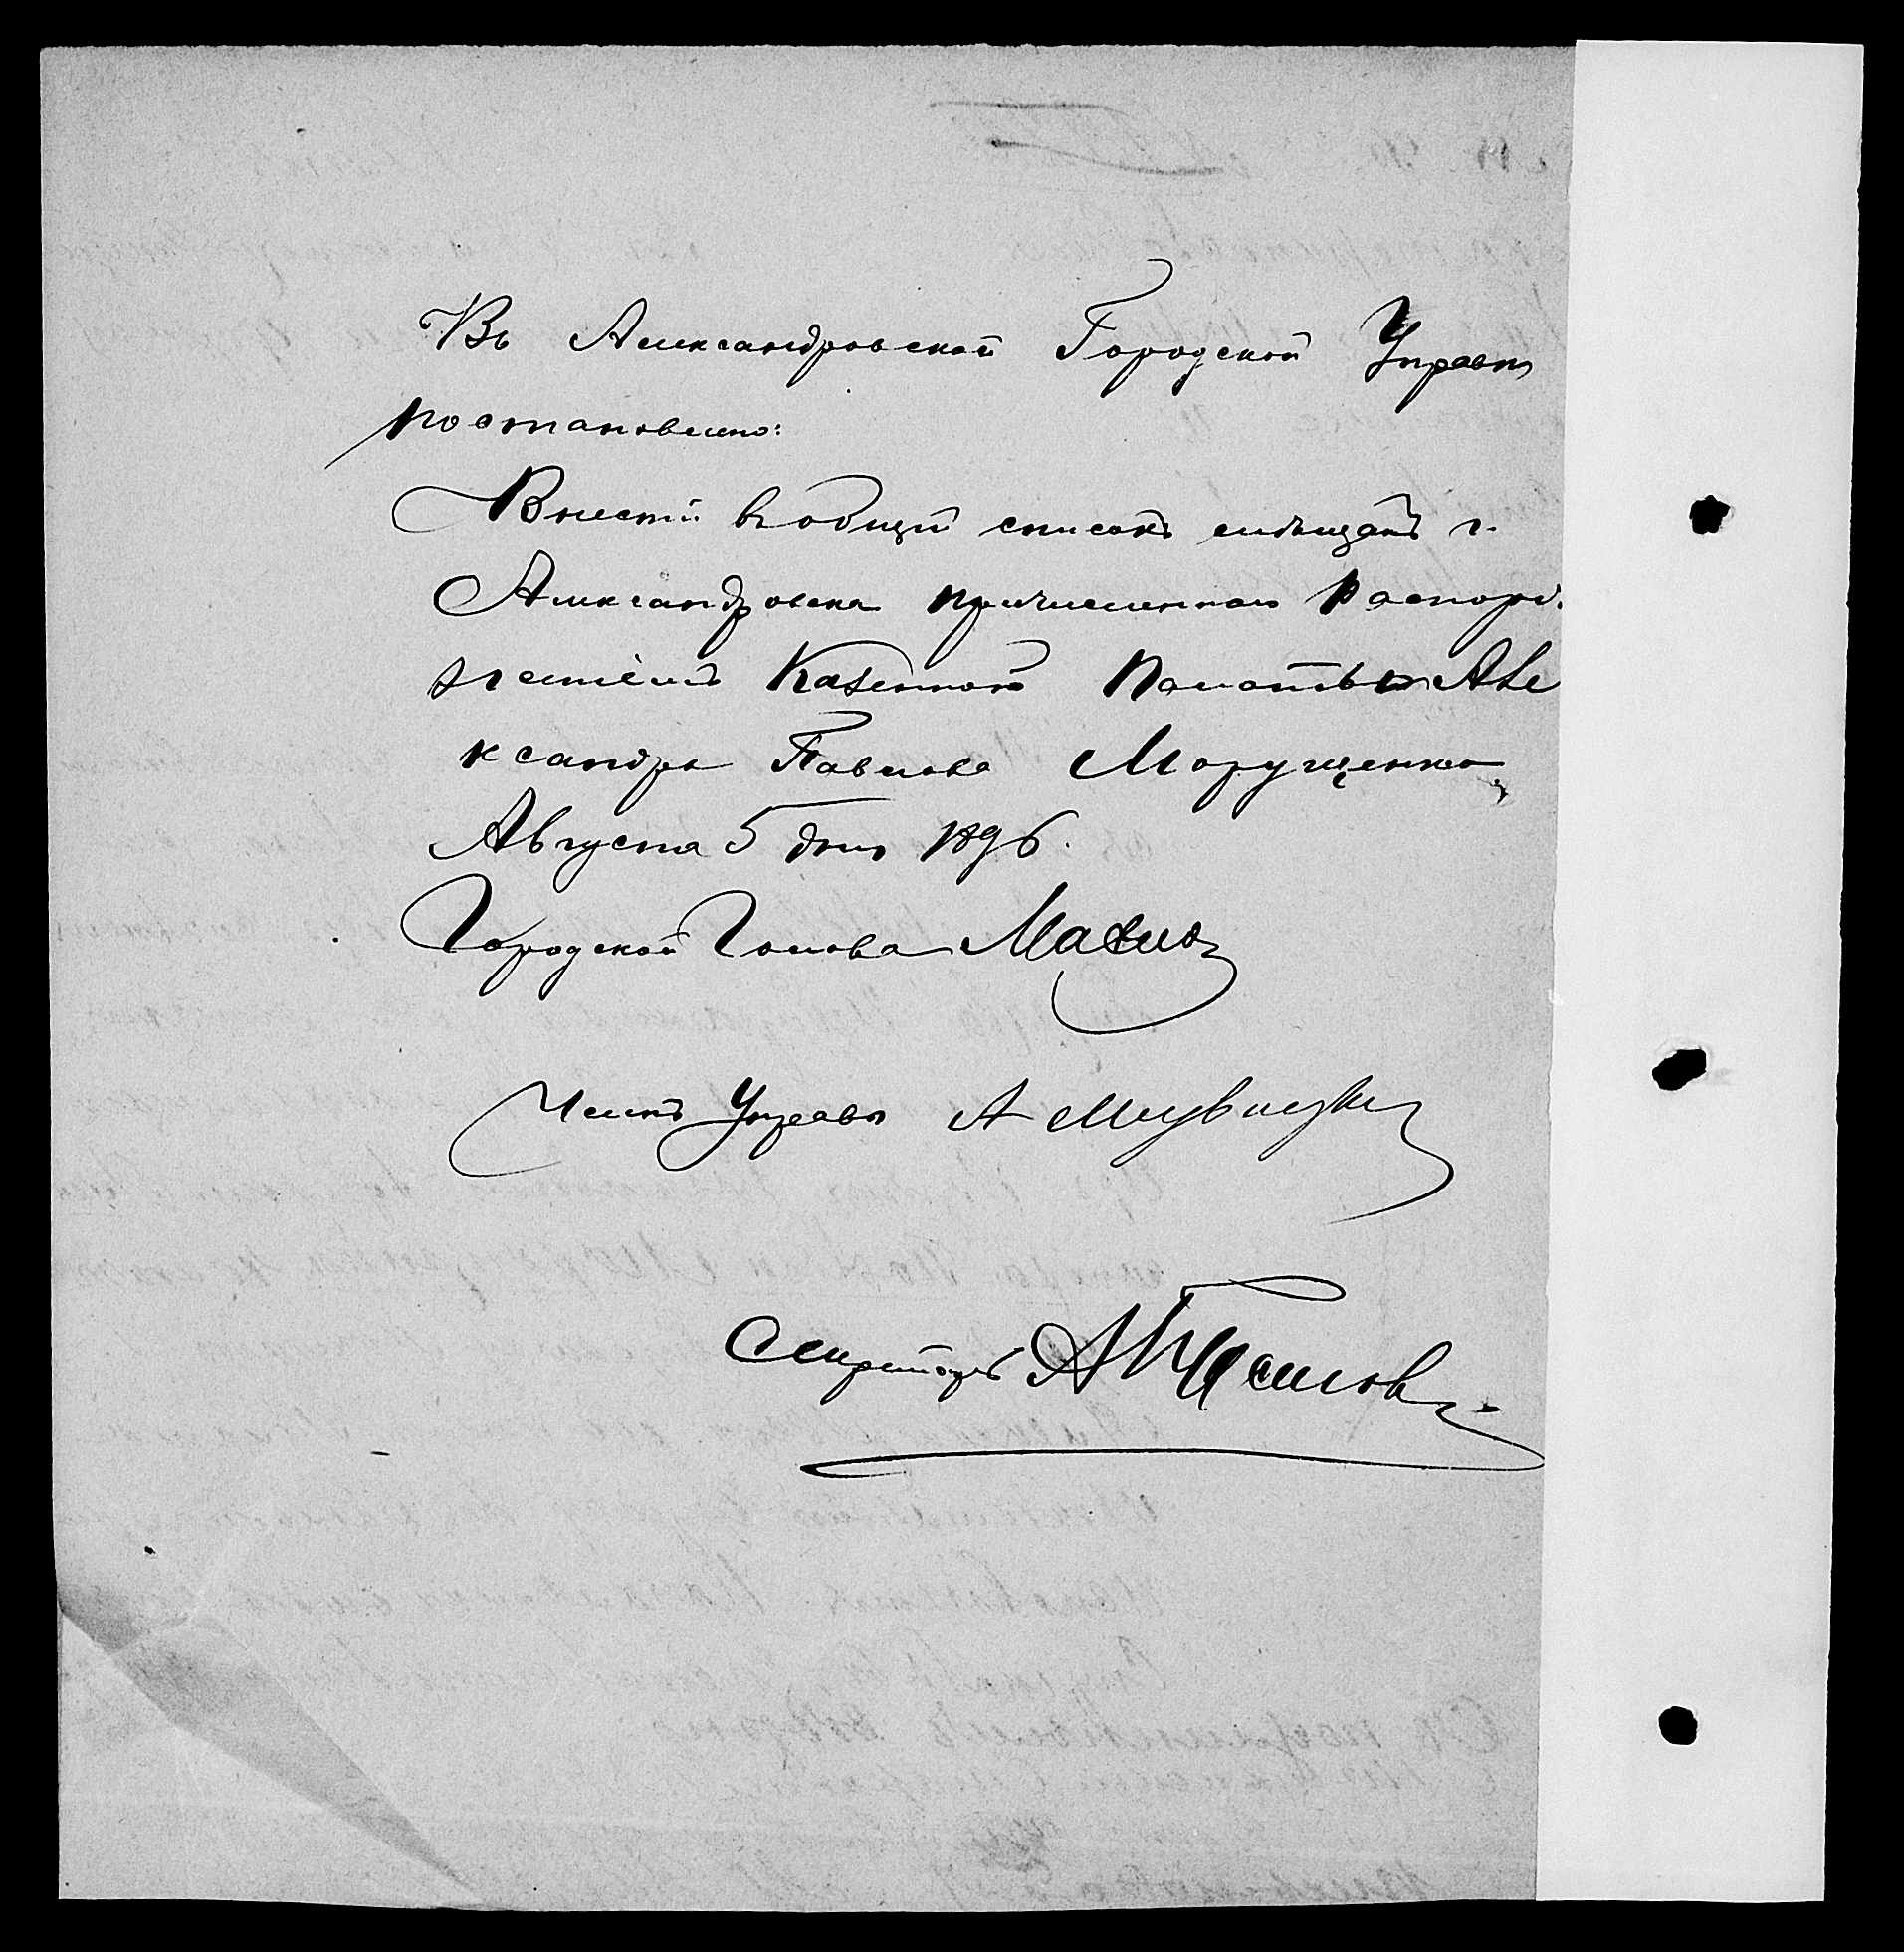 Въ Александровской Городской Управѣ
постановлено:
Внести въ общій списокъ мѣщанъ г.
Александровска причисленнаго Распоря
женіемъ Казенной Палаты Але
ксандра Павлова Марущенко
Августа 5 дня 1896.
Городской Голова
Членъ Управы А
Секретарь А